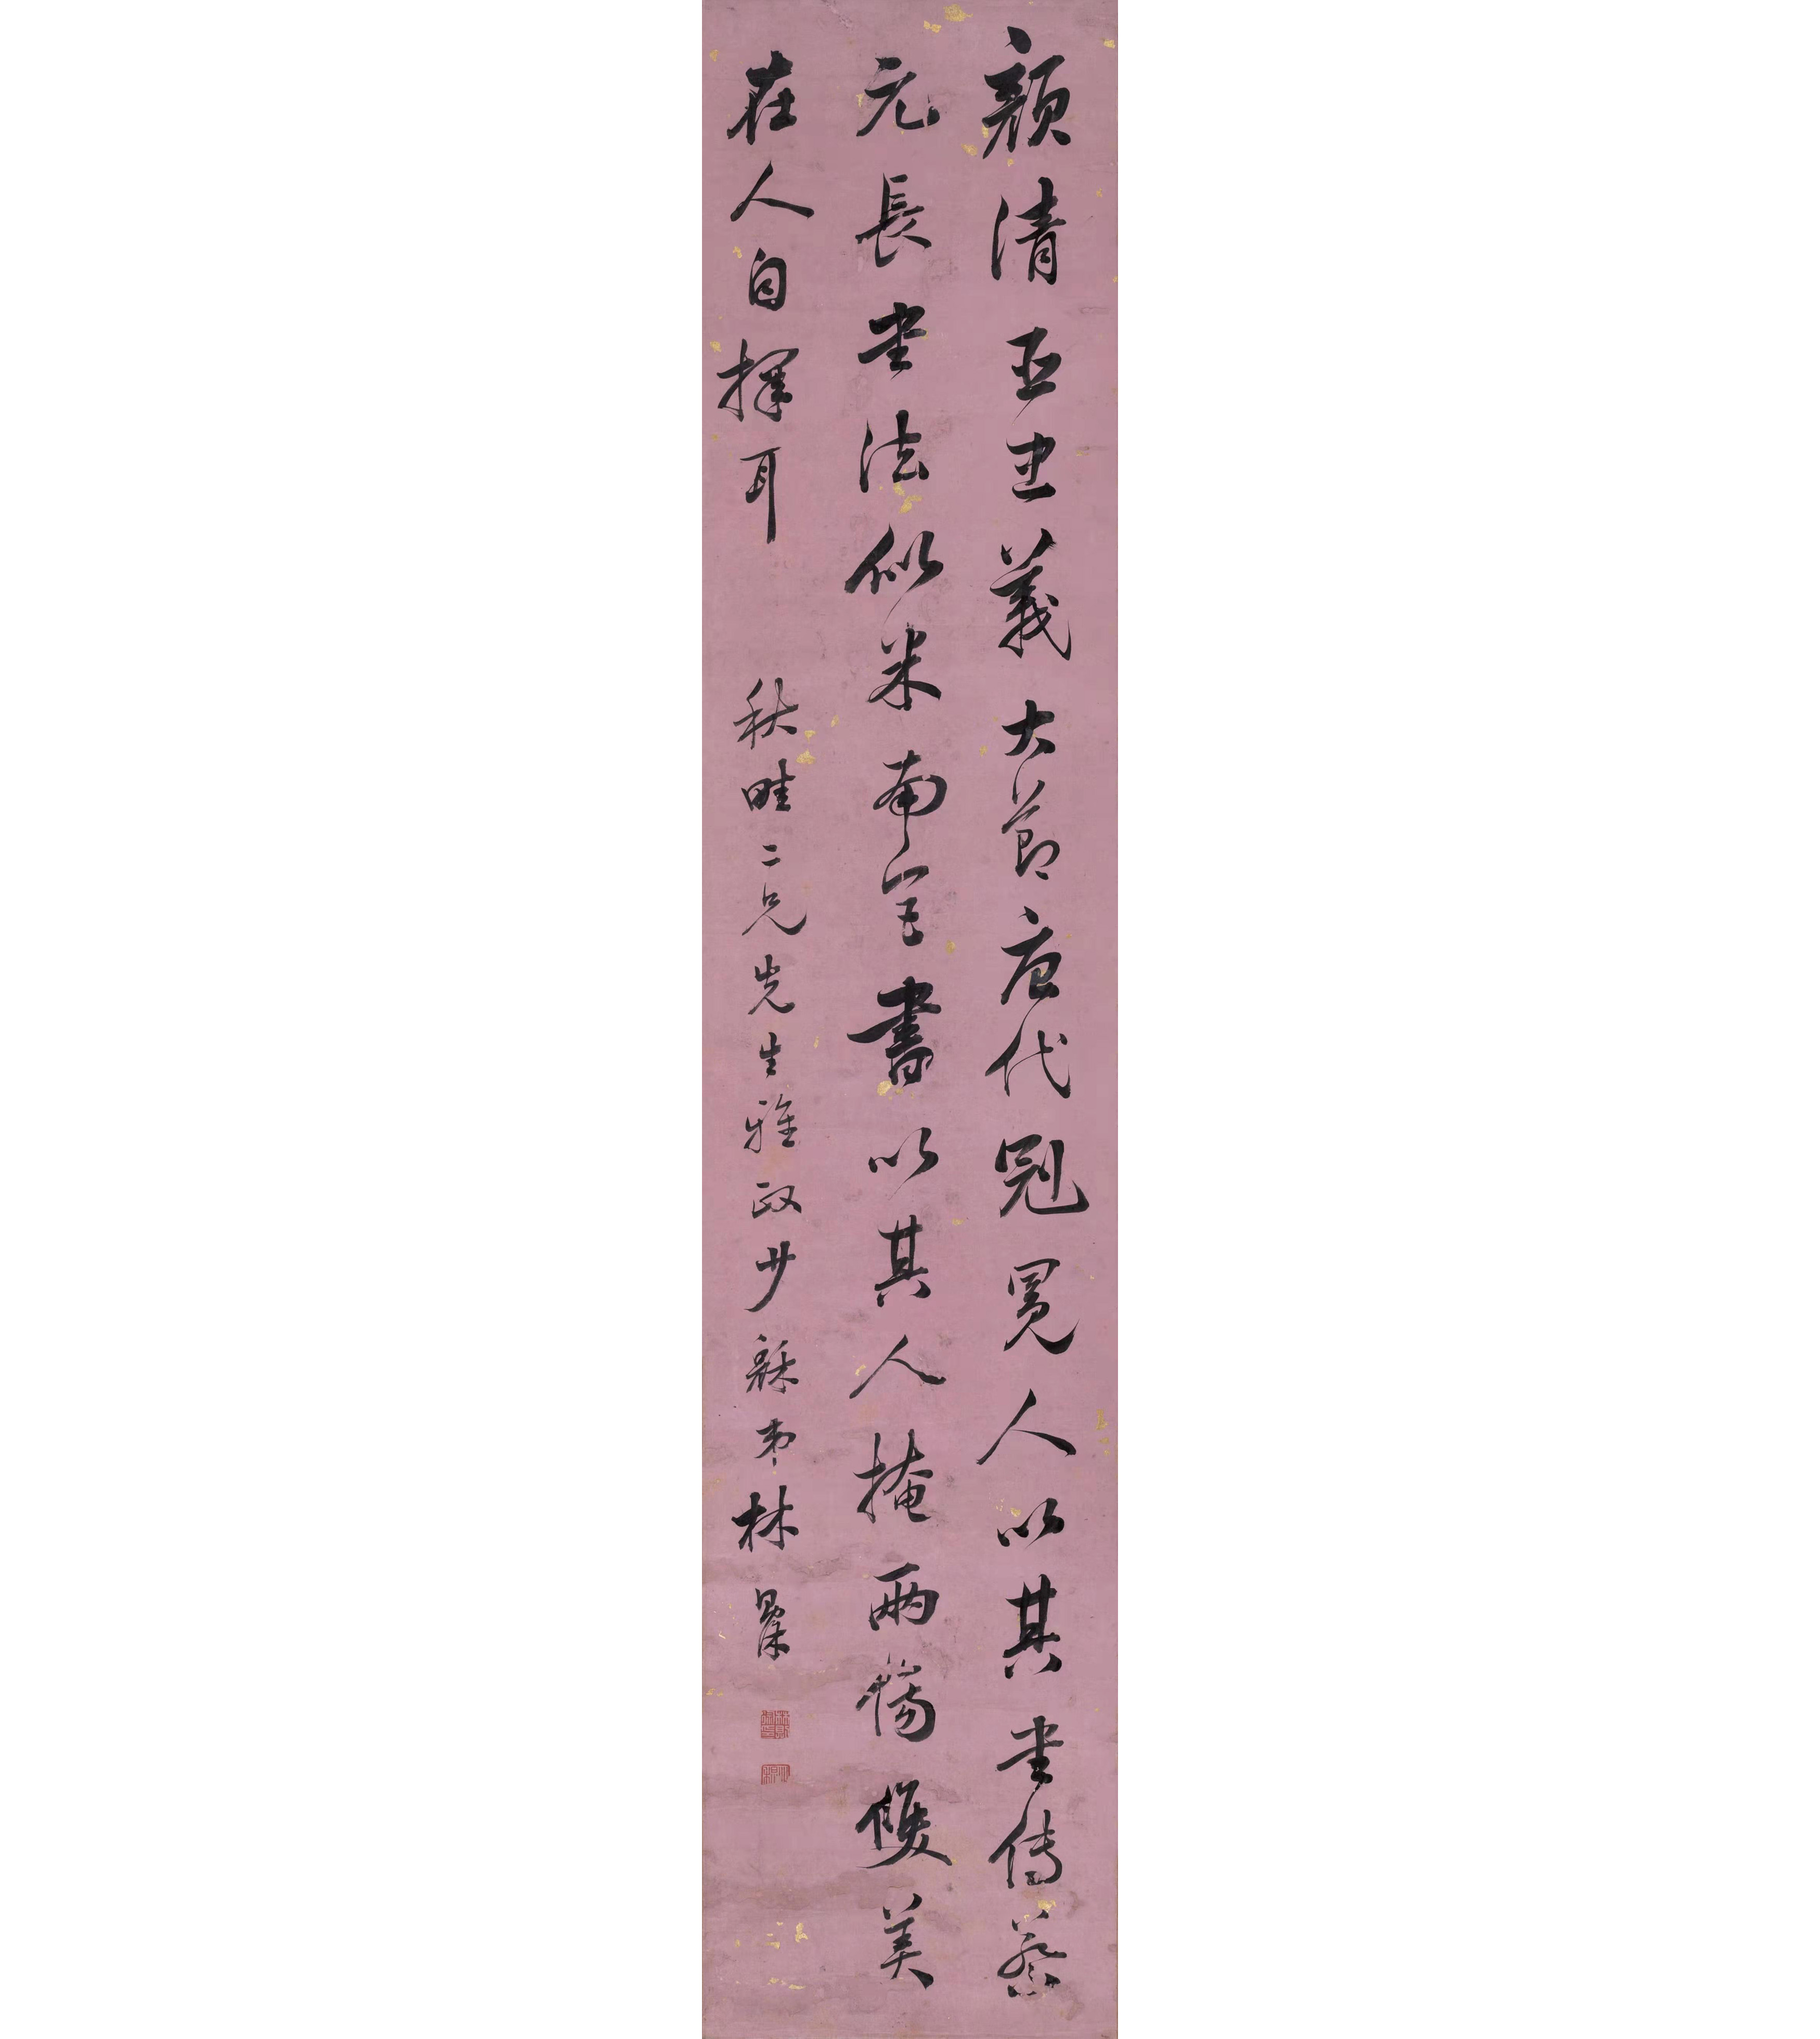 顏清臣忠義大節唐代冠冕人以其書傳蔡
元長書法似米南宮書以其人掩兩傷雙美
在人自擇耳　秋畦二兄先生雅政少穆弟林則徐